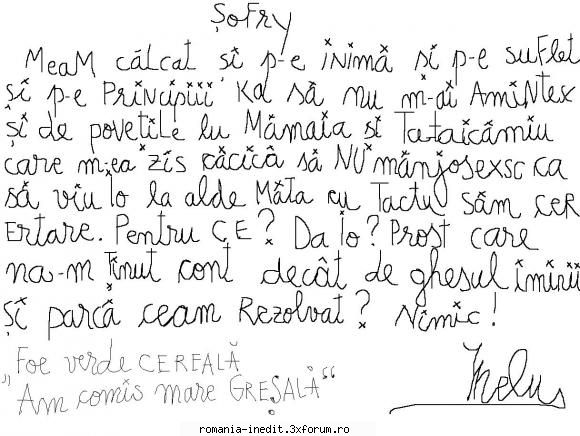 ȘoFry
MeaM călcat și p-e inimă și p-e suFlet
și p-e Principiii Ka să nu m-ai AmiNtex
Și de povetiLe lu Mămaia și Tataicămiu
care m-ea zis căcică să NU mânjosexsc ca
să viu lo la alde Măta cu Tactu sâm CER
ERtare. Pentru CE? Da lo? Prost care
na-m Ținut cont decât de ghesul iminii
Și parcă ceam Rezolvat? Nimic!
Foe verde CEREALĂ
"Am comis mare GREȘALĂ"
Jnelu
romania-inedit.3xforum.ro